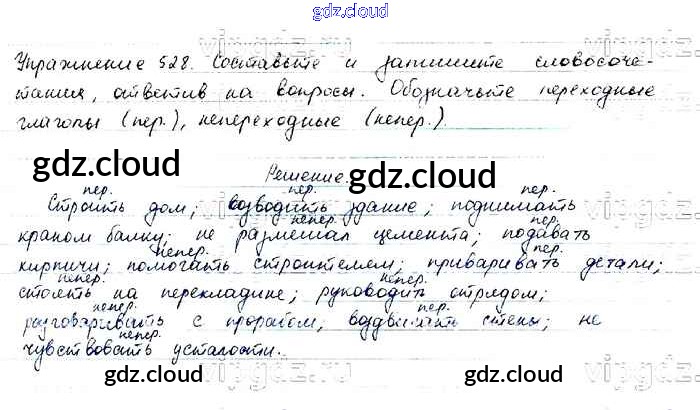 gdz.cloud
Упражнение 528. Составьте и запишите словосоче-
тания, ответив на вопросы. Обозначьте переходные
глаголы (пер.), непереходные (непер.)
gdz.cloud
Решение.
gdz.cloud
пер. пер. пер.
Строить дом; возводить здание; поднимать
непер. пер.
краном балку; не размешал цемента; подавать
непер. пер.
кирпичи; помогать строителем; приваривать детали;
непер. непер.
стоять на перекладине; руководить отрядом;
разговаривать с прорабом; воздвигать стены; не
непер. непер.
чувствовать усталости.
gdz.cloud
gdz.cloud
vipgdz.net